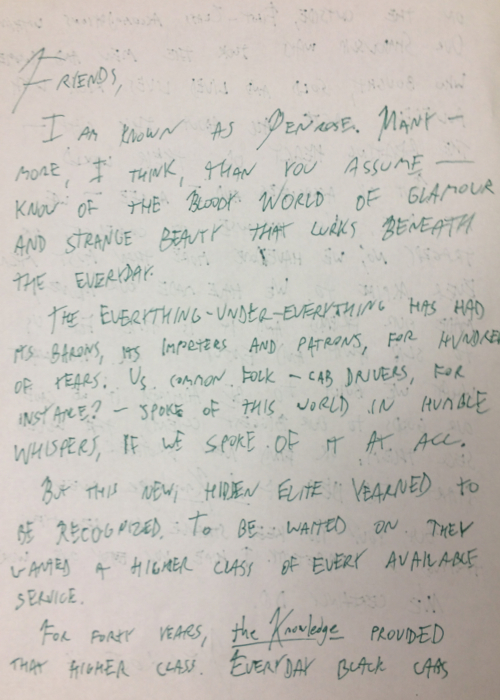 FRIENDS,
I AM KNOWN AS PENROSE. MANY —
MORE, I THINK, THAN YOU ASSUME —
KNOW OF THE BLOODY WORLD OF GLAMOUR
AND STRANGE BEAUTY THAT LURKS BENEATH
THE EVERYDAY.
THE EVERYTHING-UNDER-EVERYTHING HAS HAD
ITS BARONS, ITS IMPORTERS AND PATRONS, FOR HUNDRE
OF YEARS. US COMMON FOLK – CAB DRIVERS, FOR
INSTANCE? – SPOKE OF THIS WORLD IN HUMBLE
WHISPERS, IF WE SPOKE OF IT AT ALL.
BUT THIS NEW, HIDDEN ELITE YEARNED TO
BE RECOGNIZED. TO BE WAITED ON. THEY
WANTED A HIGHER CLASS OF EVERY AVAILABLE
SERVICE.
FOR FORTY YEARS, the Knowledge PROVIDED
THAT HIGHER CLASS. EVERYDAY BLACK CABS